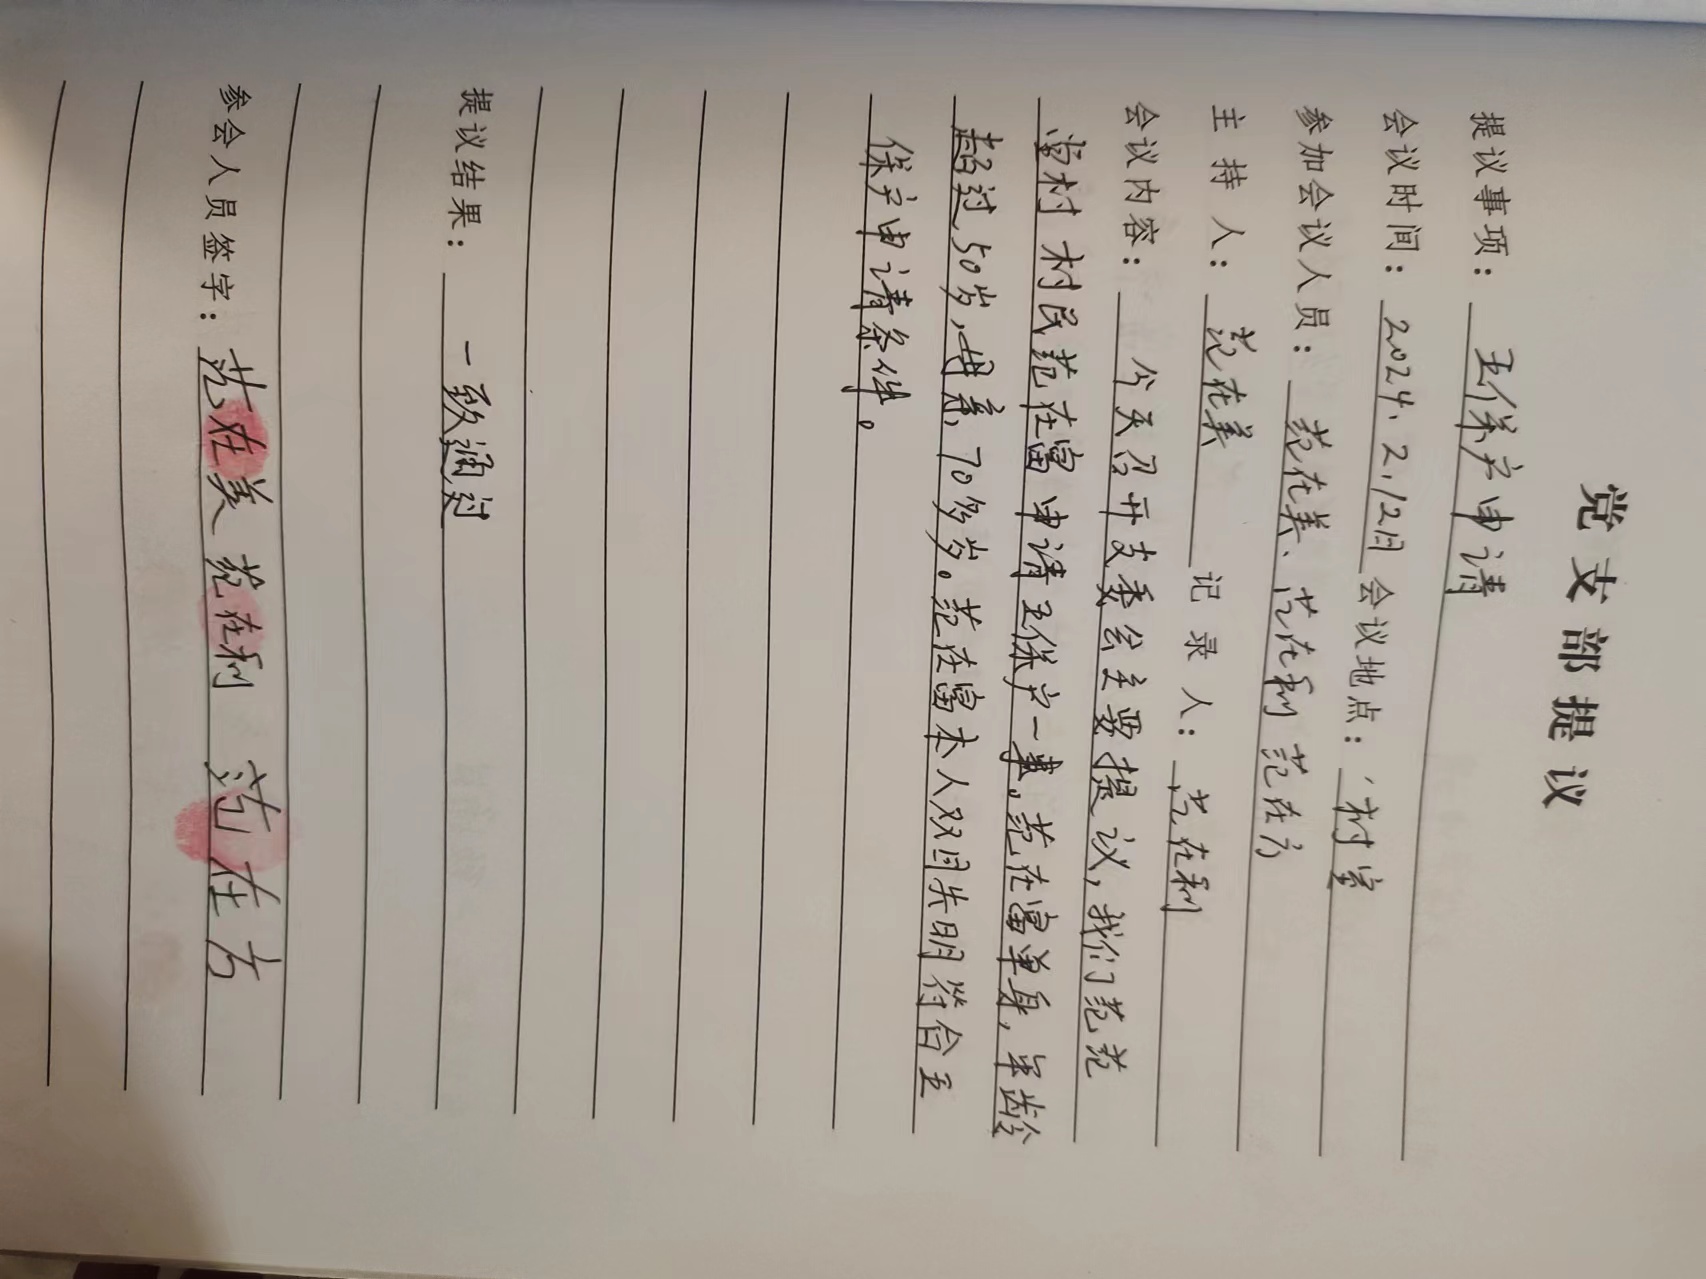 党支部提议
提议事项：五保户申请
会议时间：2024.2.12日 会议地点：村室
参加会议人员：范在美、范在利 范在方
主持人：范在美 记录人：范在利
会议内容：今天召开支委会主要提议，我们范范
堂村 村民范在富申请五保户一事。范在富单身，年龄
超过50岁，母亲70多岁。范在富本人双目失明符合五
保户申请条件。
提议结果：一致通过
参会人员签字：范在美 范在利 范在方